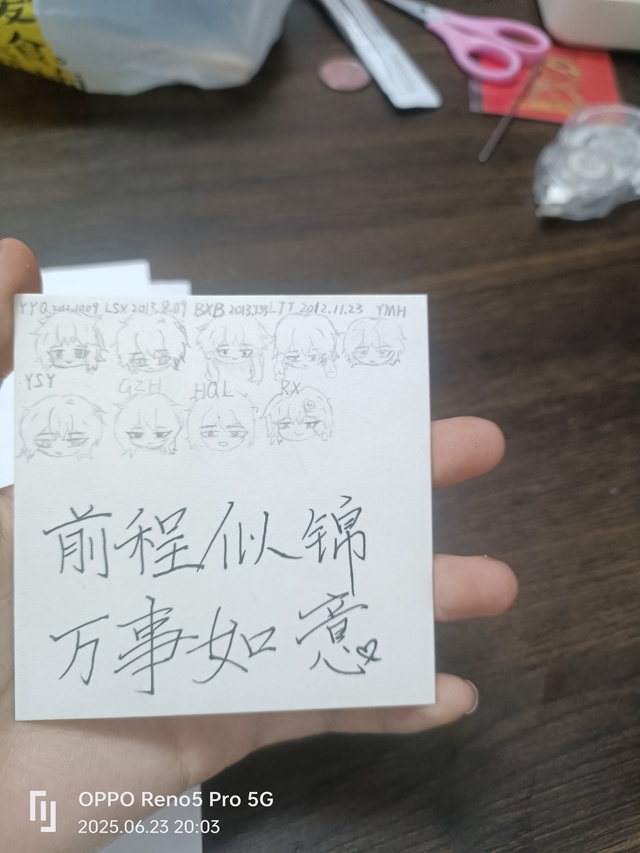 YYQ 2012.10.09 LSX 2013.8.09 BXB 2013. LTT 2012.11.23 YMH
YSY GZH HQL RX
前程似锦
万事如意
OPPO Reno5 Pro 5G
2025.06.23 20:03